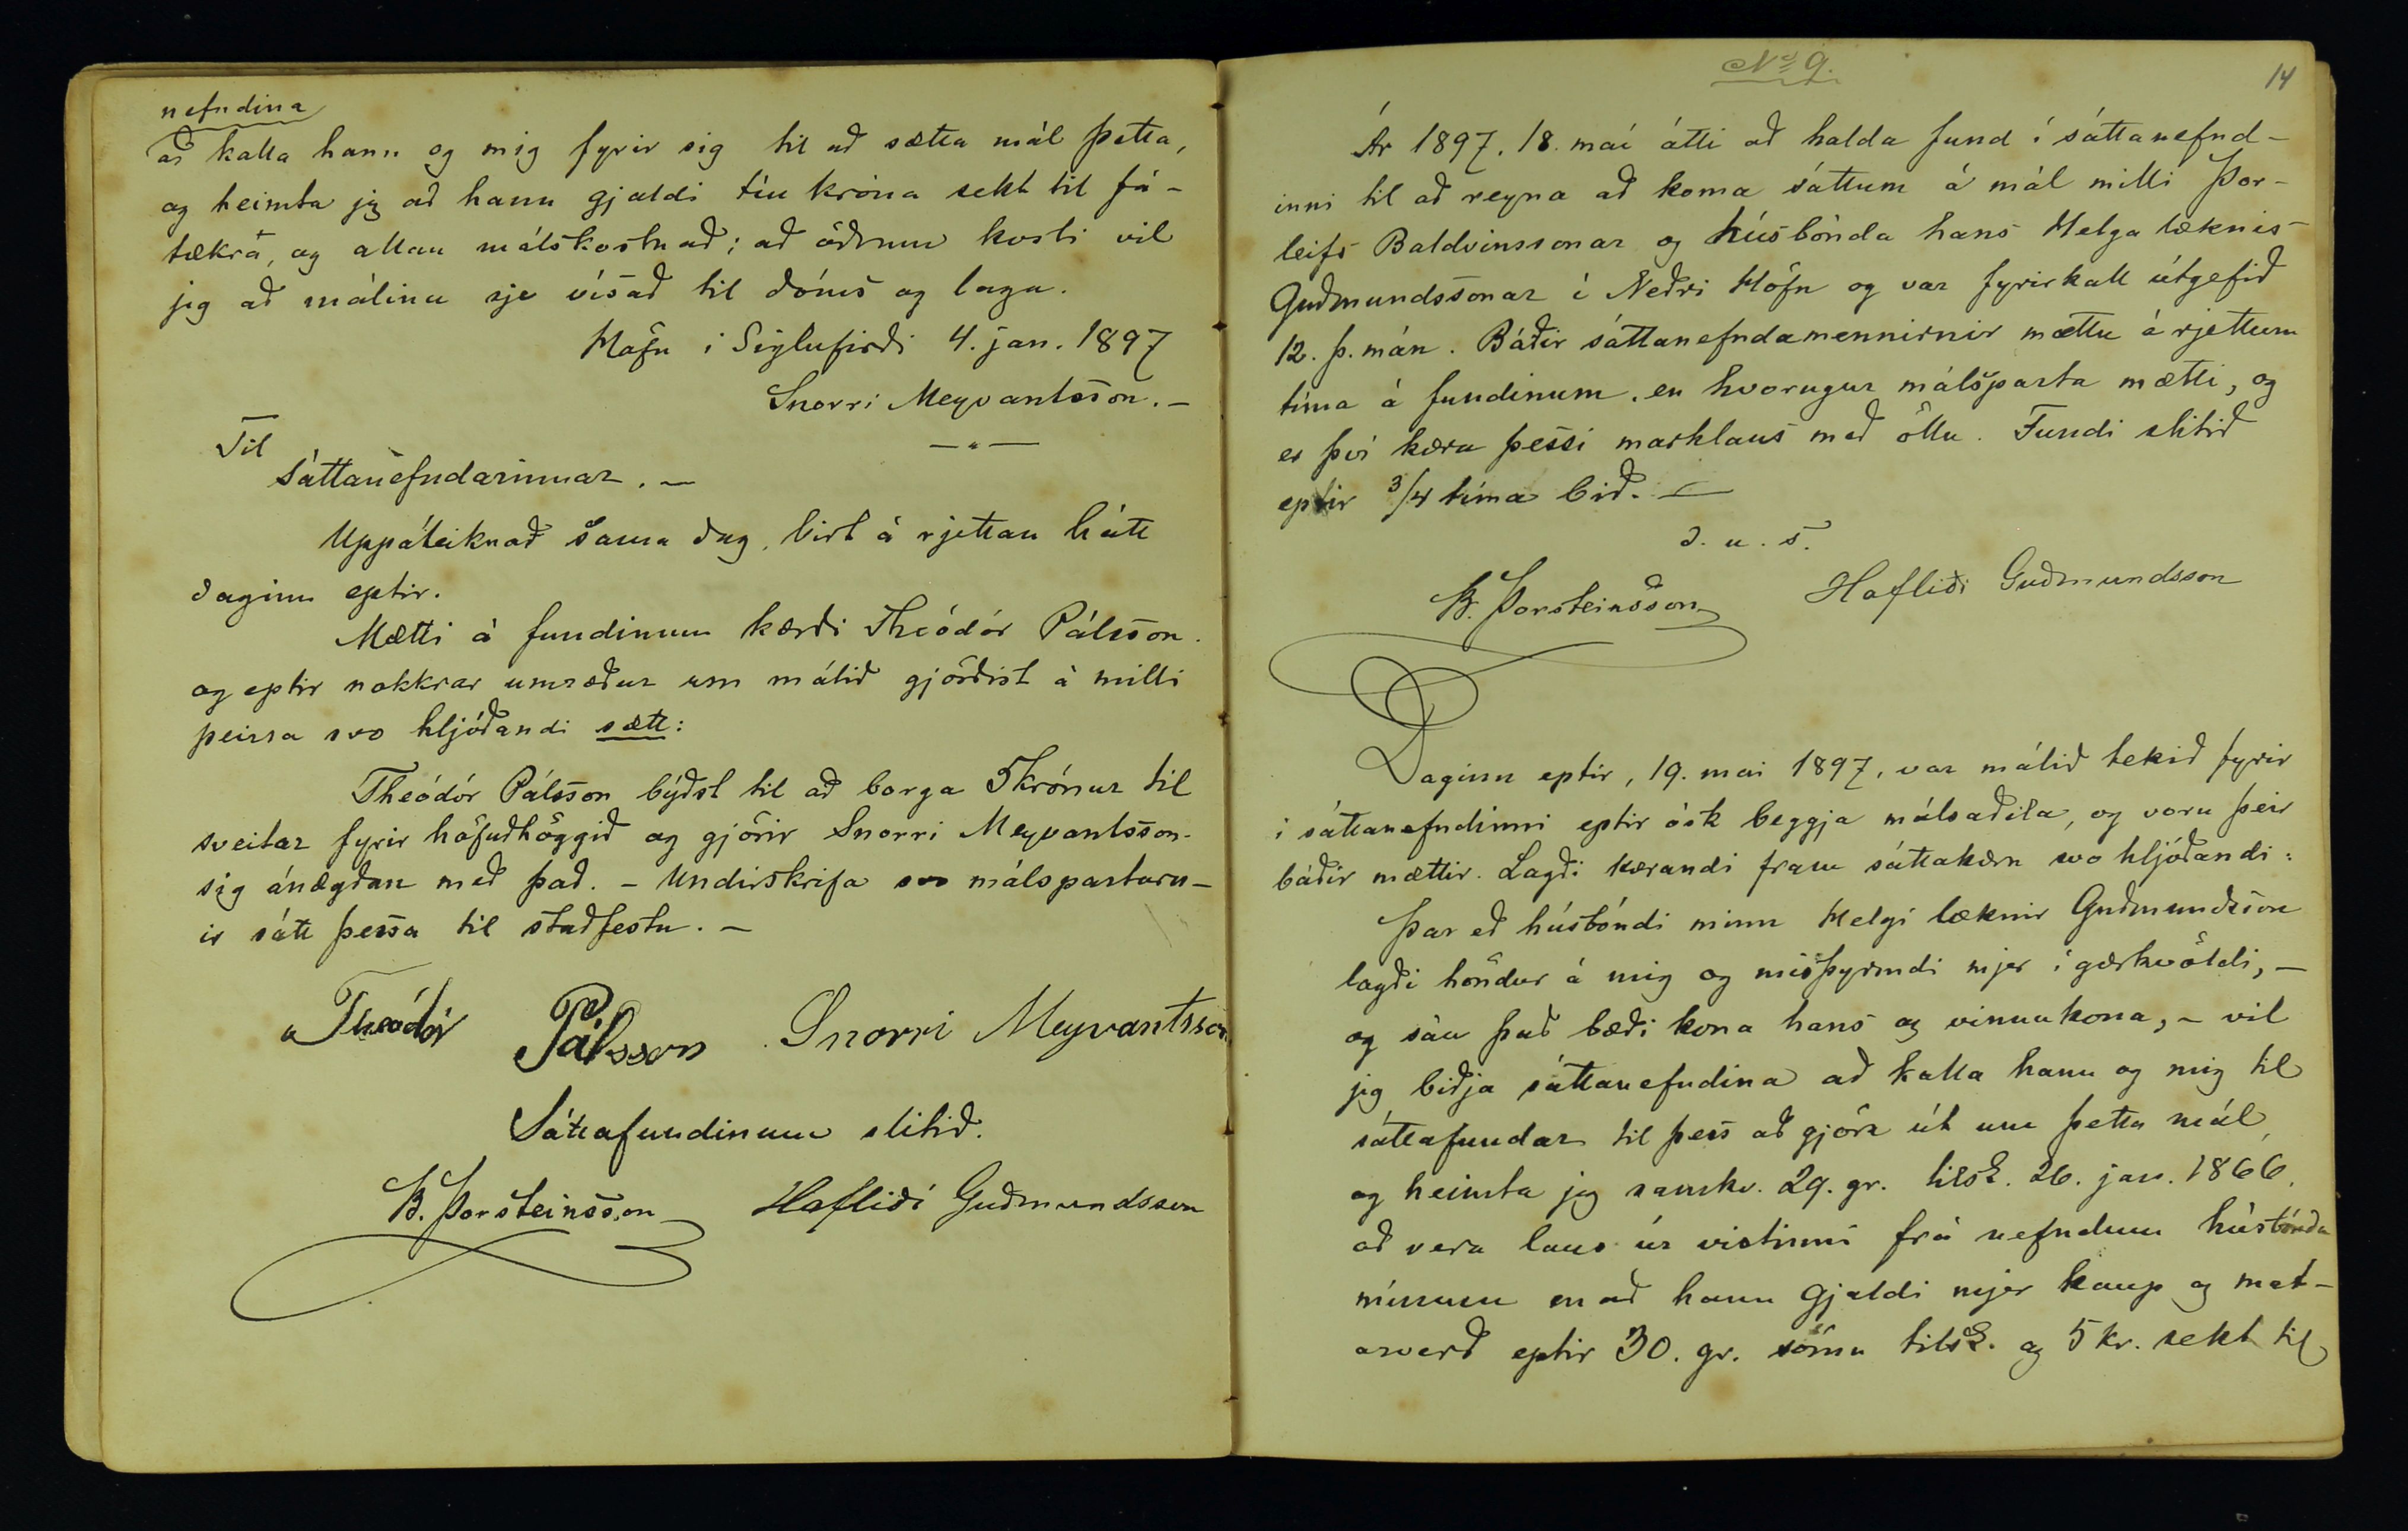 nefndina
að kalla hann og mig fyrir sig til að sætta mál þetta,
og heimta jeg að hann gjaldi tíu króna sekt til fá-
tækra, og allan málskostnað; að öðrum kosti vil
jeg að málinu sje vísað til dóms og laga.
Höfn í Siglufirði 4. jan. 1897
Snorri Meyvantsson. –
Til
Sáttanefndarinnar. –
Uppáteiknað sama dag, birt á rjettan hátt
daginn eptir.
Mætti á fundinum kærði Theódór Pálsson.
og eptir nokkrar umræður um málið gjörðist á milli
þeirra svo hljóðandi sætt:
Theódór Pálsson býðst til að borga 5 krónur til
sveitar fyrir höfuðhöggið og gjörir Snorri Meyvantsson
sig ánægðan með það. – Undirskrifa svo málspartarn-
ir sátt þessa til staðfestu. –
Theódór Pálsson Snorri Meyvantsson
Sáttafundinum slitið.
B. Þorsteinsson Hafliði Guðmundsson
No 9.
14
Ár 1897, 18. maí átti að halda fund í sáttanefnd-
inni til að reyna að koma sáttum á mál milli Þor-
leifs Baldvinssonar og húsbónda hans Helga læknis
Guðmundssonar í Neðri Höfn og var fyrirkall útgefið
12. þ. mán. Báðir sáttanefndamennirnir mættu á rjettum
tíma á fundinum, en hvorugur málsparta mætti, og
er því kæra þessi marklaus með öllu. Fundi slitið
eptir 3/4 tíma bið. –
D. u. s.
B. Þorsteinsson Hafliði Guðmundsson
Daginn eptir, 19. mai 1897, var málið tekið fyrir
í sáttanefndinni eptir ósk beggja málsaðila, og voru þeir
báðir mættir. Lagði kærandi fram sáttakæru svo hljóðandi:
Þar eð húsbóndi minn Helgi læknir Guðmundsson
lagði höndur á mig og misþyrmdi mjer í gærkvöldi, –
og sáu það bæði kona hans og vinnukona, – vil
jeg biðja sáttanefndina að kalla hann og mig til
sáttafundar til þess að gjöra út um þetta mál,
og heimta jeg samkv. 29. gr. tilsk. 26. jan. 1866.
að vera laus úr vistinni frá nefndum húsbónda
mínum en að hann gjaldi mjer kaup og mat-
arverð eptir 30. gr. sömu tilsk. og 5 kr. sekt til